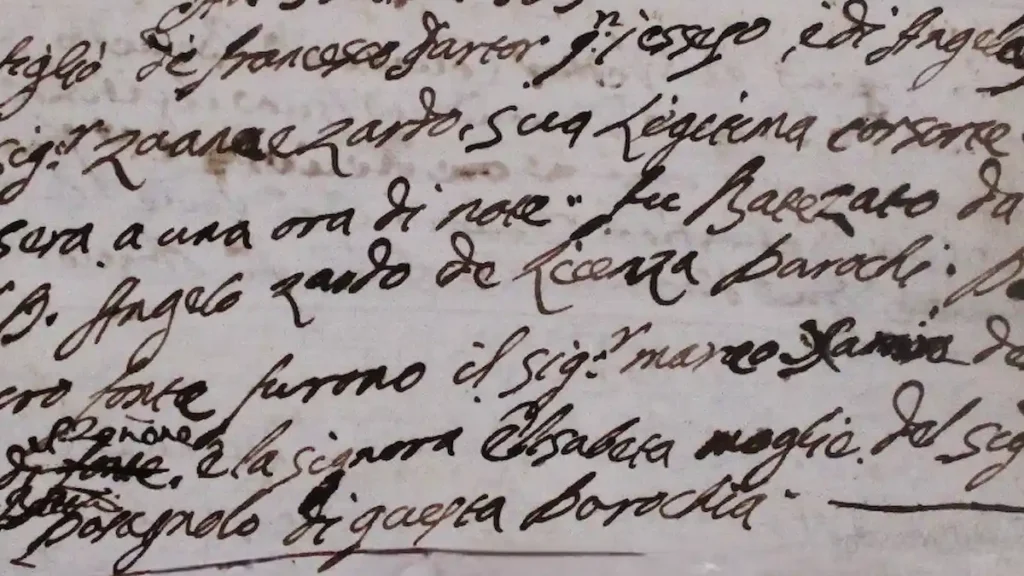 figlio de francesco Sartor q.n Iessepo, e di Angela
sig.r Zuane Zardo, sua Legitima consorte
sera a una ora di note. fu Batezato da
D. Angelo Zardo de Licenza Parochi.
cro fonte furono il sig.r marco de
e la signora Elisabeta moglie del sig
di questa Parochia